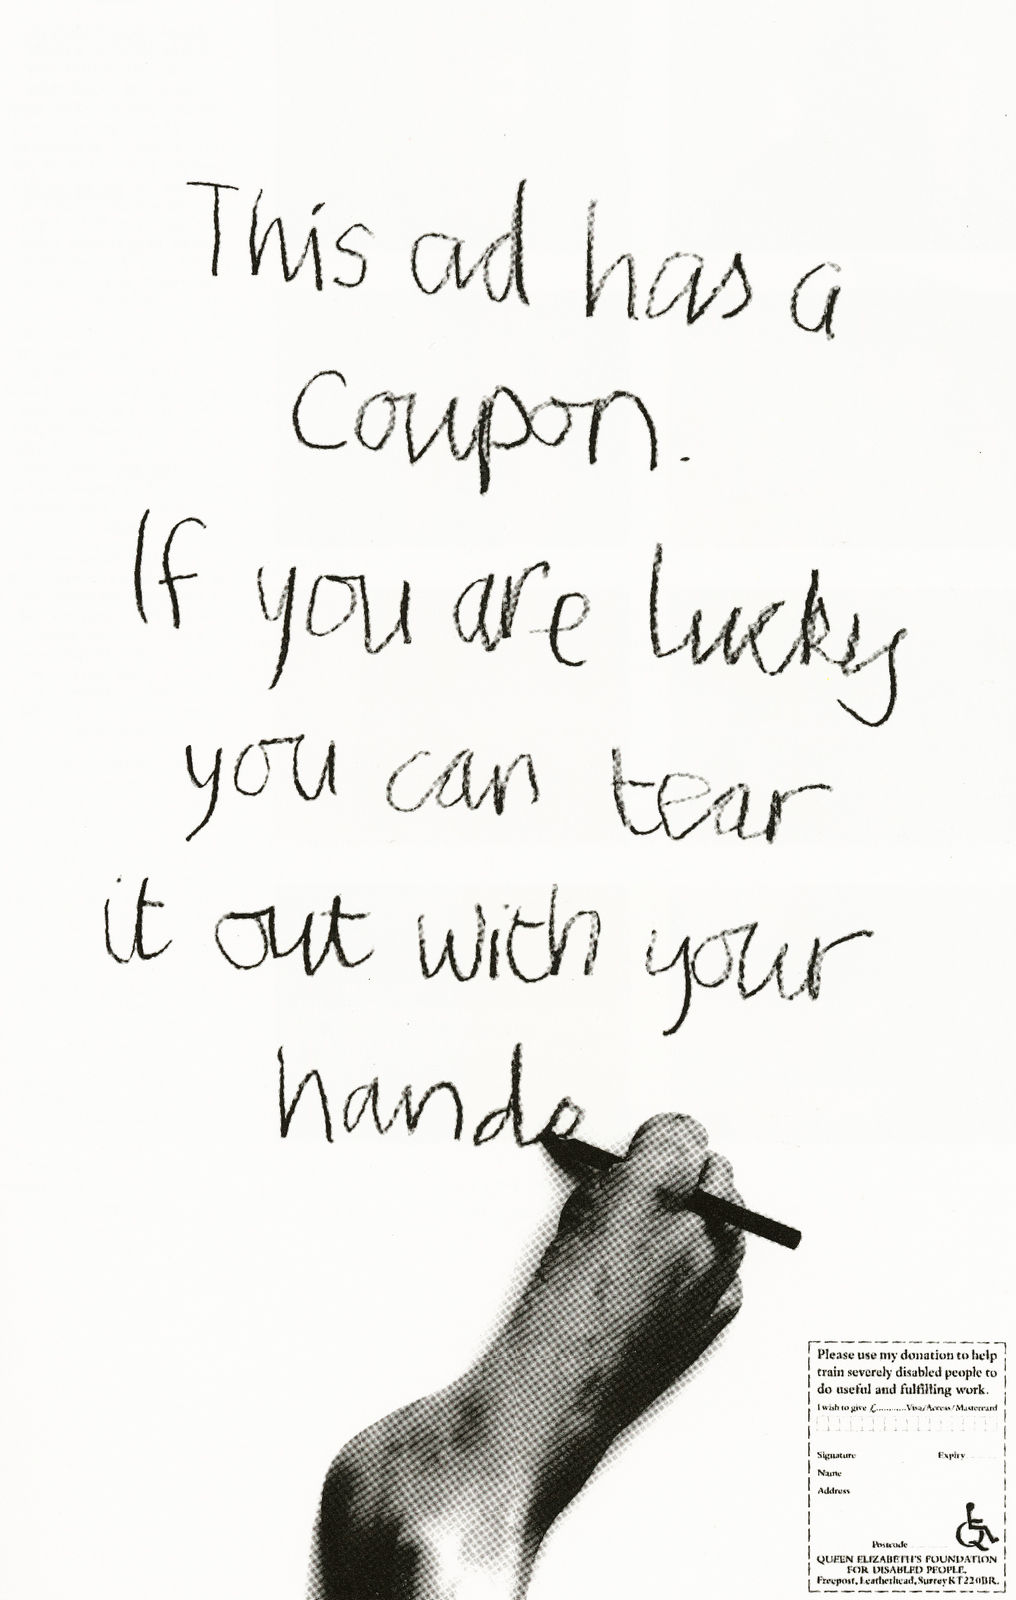 This ad has a
coupon.
If you are lucky
you can tear
it out with your
hands
Please use my donation to help
train severely disabled people to
do useful and fulfilling work.
I wish to give £............Visa/Access/Mastercard
Signature Expiry
Name
Address
Postcode
QUEEN ELIZABETH'S FOUNDATION
FOR DISABLED PEOPLE,
Freepost, Leatherhead, Surrey KT22 0BR.